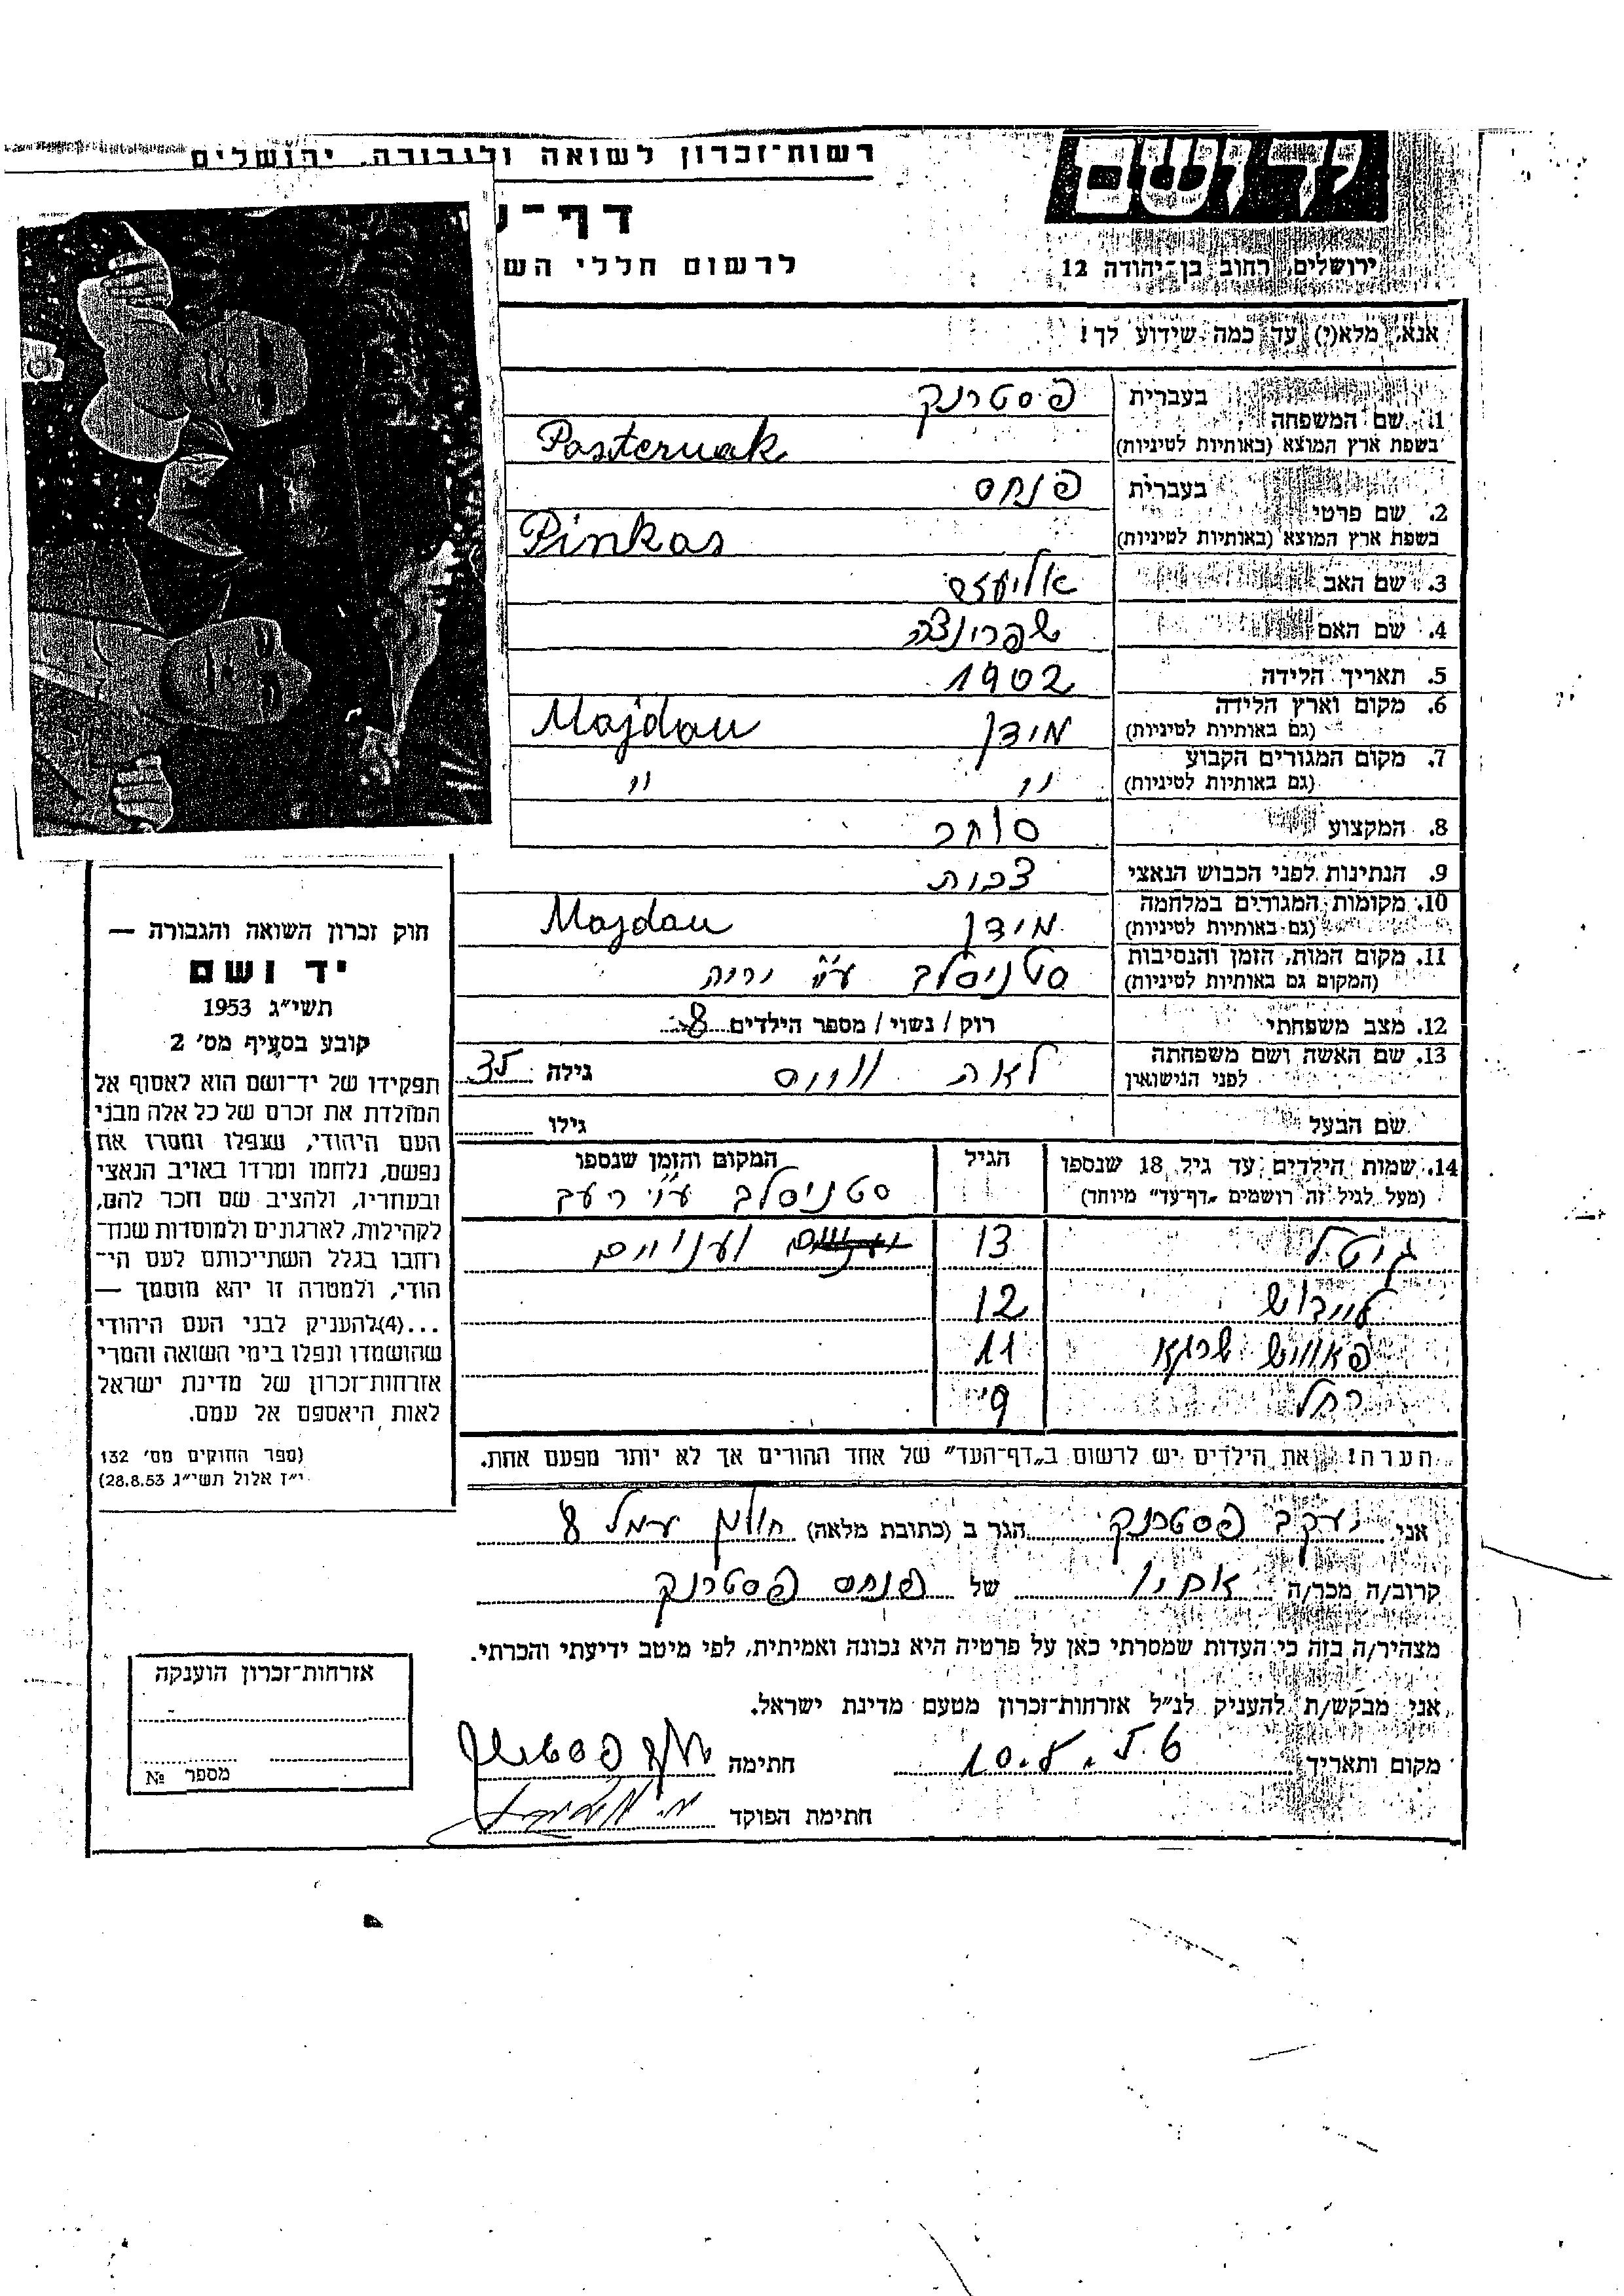 רשות־זכרון לשואה ולגבורה, ירושלים
יד ושם
דף־
לרשום חללי הש
ירושלים, רחוב בן־יהודה 12
אנא, מלא(י) עד כמה שידוע לך!
1. שם המשפחה בעברית פסטרנק
בשפת ארץ המוצא (באותיות לטיניות) Pasternak
2. שם פרטי בעברית פנחס
בשפת ארץ המוצא (באותיות לטיניות) Pinkas
3. שם האב אליעזר
4. שם האם שפרינצה
5. תאריך הלידה 1902
6. מקום וארץ הלידה (גם באותיות לטיניות) מידן Majdan
7. מקום המגורים הקבוע (גם באותיות לטיניות) " "
8. המקצוע סוחר
9. הנתינות לפני הכבוש הנאצי
10. מקומות המגורים במלחמה (גם באותיות לטיניות) מידן Majdan
11. מקום המות, הזמן והנסיבות (המקום גם באותיות לטיניות) סטניסלב ע"י
12. מצב משפחתי רוק / נשוי / מספר הילדים 8
13. שם האשה ושם משפחתה לפני הנישואין לאה גילה 35
שם הבעל גילו
14. שמות הילדים עד גיל 18 שנספו הגיל המקום והזמן שנספו
(מעל לגיל זה רושמים „דף־עד” מיוחד) סטניסלב ע"י רעב
גיטל 13 ועינויים
12
שרגא 11
רחל 9
הערה: את הילדים יש לרשום ב„דף־העד” של אחד ההורים אך לא יותר מפעם אחת.
אני יעקב פסטרנק הגר ב (כתובת מלאה) חולון עמל 8
קרוב/ה מכר/ה אחיו של פנחס פסטרנק
מצהיר/ה בזה כי העדות שמסרתי כאן על פרטיה היא נכונה ואמיתית, לפי מיטב ידיעתי והכרתי.
אני מבקש/ת להעניק לנ״ל אזרחות־זכרון מטעם מדינת ישראל.
מקום ותאריך חתימה
חתימת הפוקד
חוק זכרון השואה והגבורה —
יד ושם
תשי״ג 1953
קובע בסעיף מס׳ 2
תפקידו של יד־ושם הוא לאסוף אל
המולדת את זכרם של כל אלה מבני
העם היהודי, שנפלו ומסרו את
נפשם, נלחמו ומרדו באויב הנאצי
ובעוזריו, ולהציב שם וזכר להם,
לקהילות, לארגונים ולמוסדות שנח־
רבו בגלל השתייכותם לעם הי־
הודי, ולמטרה זו יהא מוסמך —
...(4)להעניק לבני העם היהודי
שהושמדו ונפלו בימי השואה והמרי
אזרחות־זכרון של מדינת ישראל
לאות היאספם אל עמם.
(ספר החוקים מס׳ 132
י״ז אלול תשי״ג 28.8.53)
אזרחות־זכרון הוענקה
מספר №